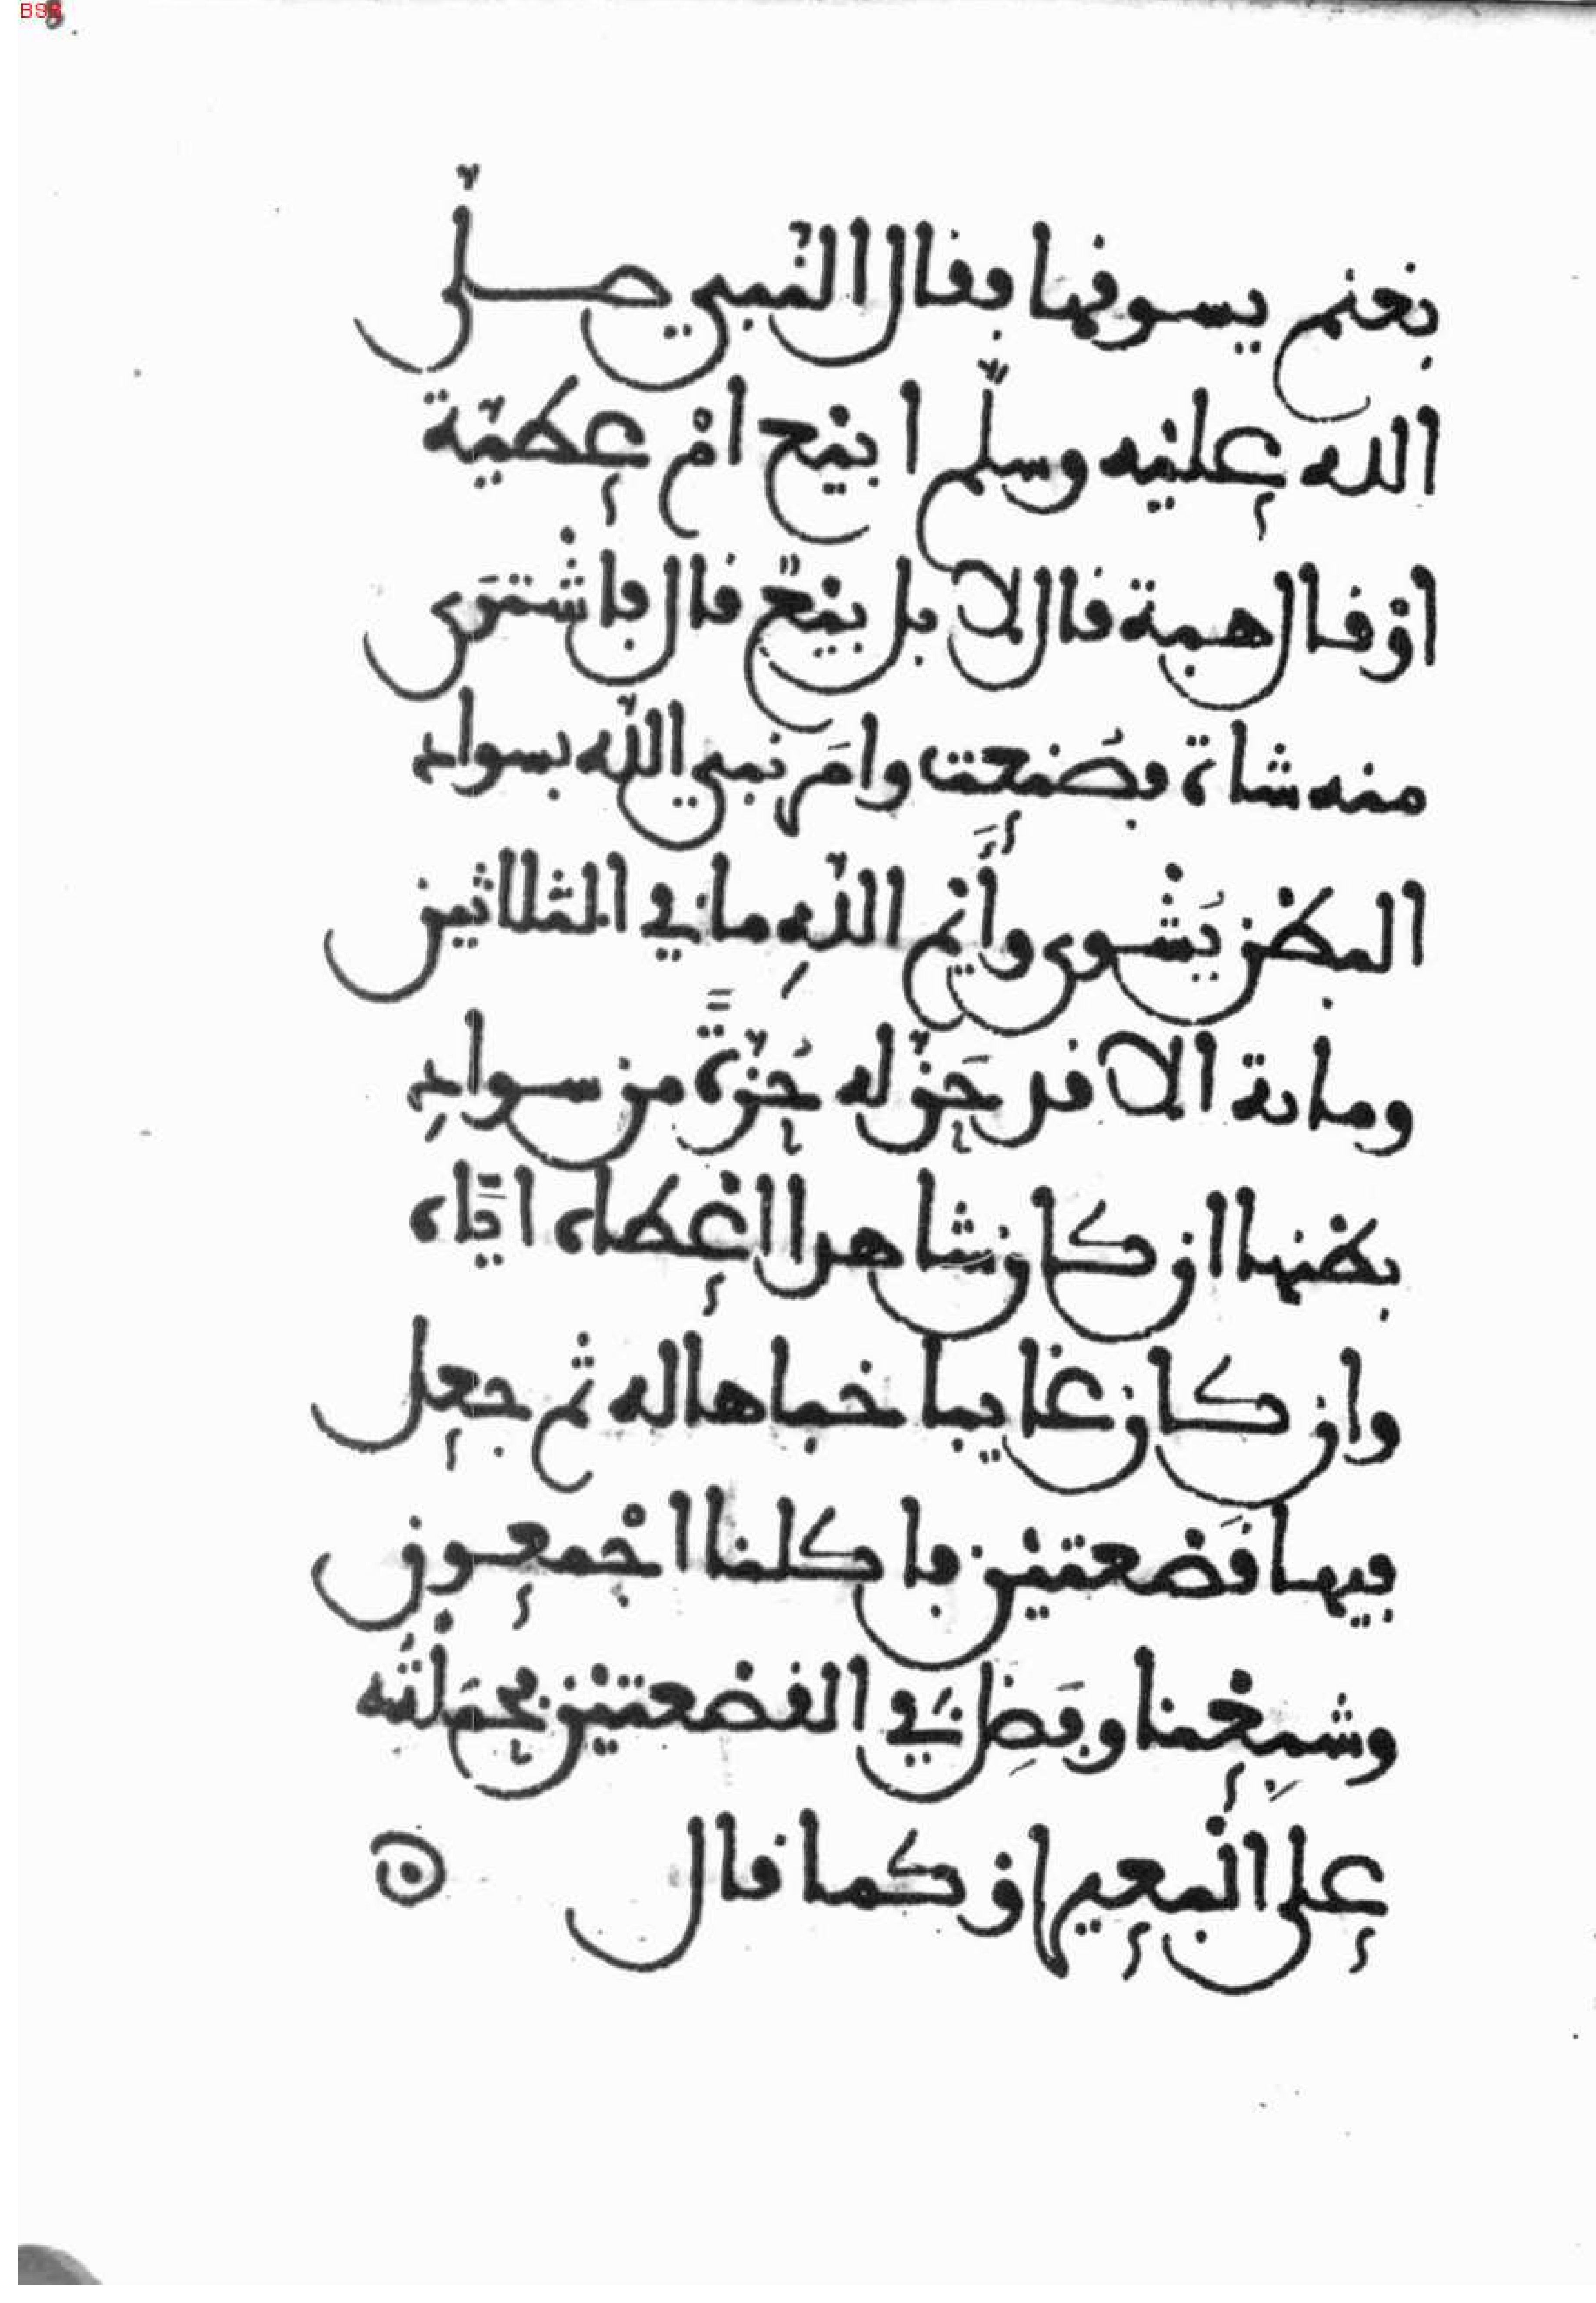 BSB
بغنم يسوقها فقال النّبي صلّى
الله عليْه وسلّم ابيْع امْ عطيّة
اوْ قال هبة قال لا بل بيْعٌ قال فاشْتَرى
منه شاة فصُنعت وامَر نبي اللّه بسواد
البطْن يُشْوى وأَيْم اللّهِ ما في الثلاثين
ومائة الا قد حَزّ له حُزّةً من سوادِ
بطْنها ان كان شاهدا اعْطاه ايّاه
وان كان غايبا خباها له ثم جعل
فيها قَصْعتيْن فاكلنا اجْمعون
وشبِعْنا وفَضِل في القصْعتيْن فحَملْتُه
على الْبعير اوْ كما قال